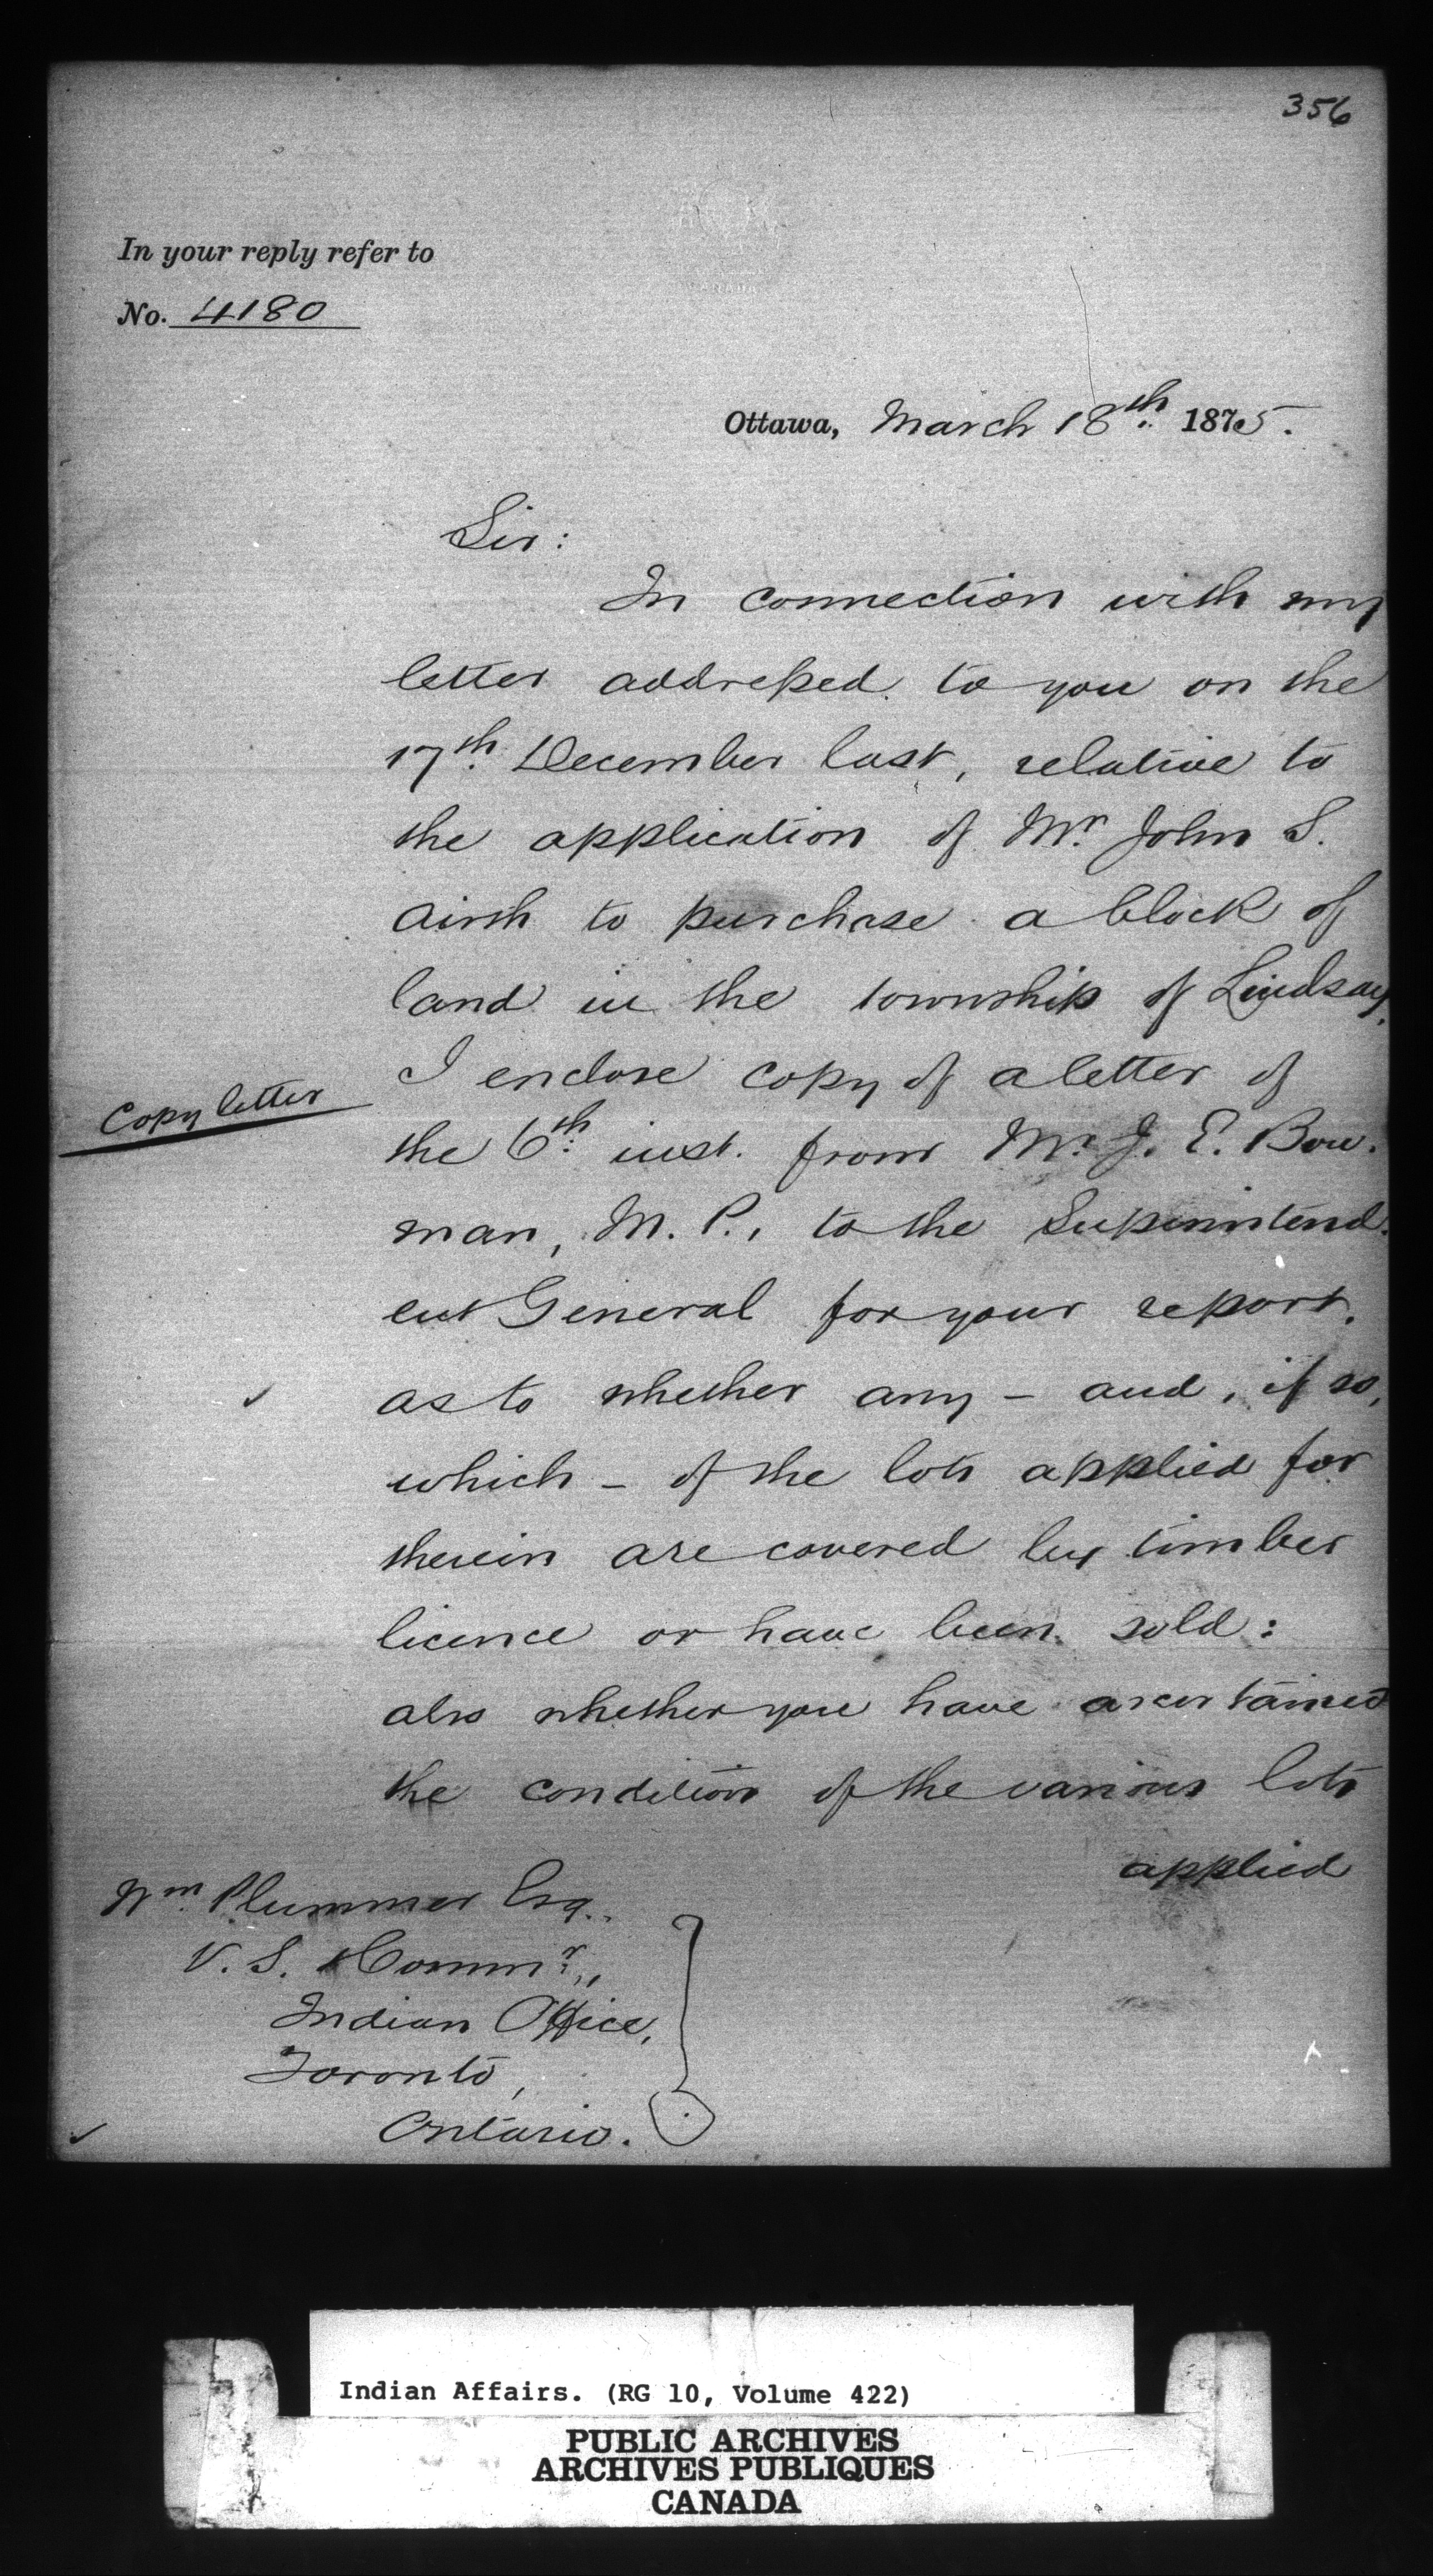 356
In your reply refer to
No. 4180
Ottawa, March 18th. 1875.
Sir:
In connection with my
letter addressed to you on the
17th. December last, relative to
the application of Mr. John S.
Airth to purchase a block of
land in the township of Lindsay,
I enclose copy of a letter of
Copy letter
the 6th. inst. from Mr. J. E. Bow-
man, M. P., to the Superintend-
ent General for your report,
as to whether any – and, if so,
which – of the lots applied for
therein are covered by timber
licence or have been sold:
also whether you have ascertained
the condition of the various lots
applied
Wm. Plummer Esq.
V. S. & Commr.,
Indian Office,
Toronto,
Ontario.
Indian Affairs. (RG 10, Volume 422)
PUBLIC ARCHIVES
ARCHIVES PUBLIQUES
CANADA